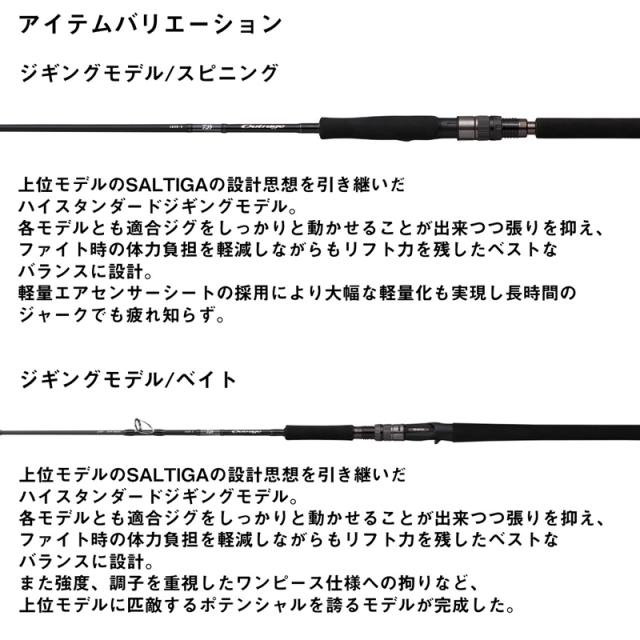 アイテムバリエーション
ジギングモデル/スピニング
Outrage
上位モデルのSALTIGAの設計思想を引き継いだ
ハイスタンダードジギングモデル。
各モデルとも適合ジグをしっかりと動かせることが出来つつ張りを抑え、
ファイト時の体力負担を軽減しながらもリフト力を残したベストな
バランスに設計。
軽量エアセンサーシートの採用により大幅な軽量化も実現し長時間の
ジャークでも疲れ知らず。
ジギングモデル/ベイト
Outrage
上位モデルのSALTIGAの設計思想を引き継いだ
ハイスタンダードジギングモデル。
各モデルとも適合ジグをしっかりと動かせることが出来つつ張りを抑え、
ファイト時の体力負担を軽減しながらもリフト力を残したベストな
バランスに設計。
また強度、調子を重視したワンピース仕様への拘りなど、
上位モデルに匹敵するポテンシャルを誇るモデルが完成した。